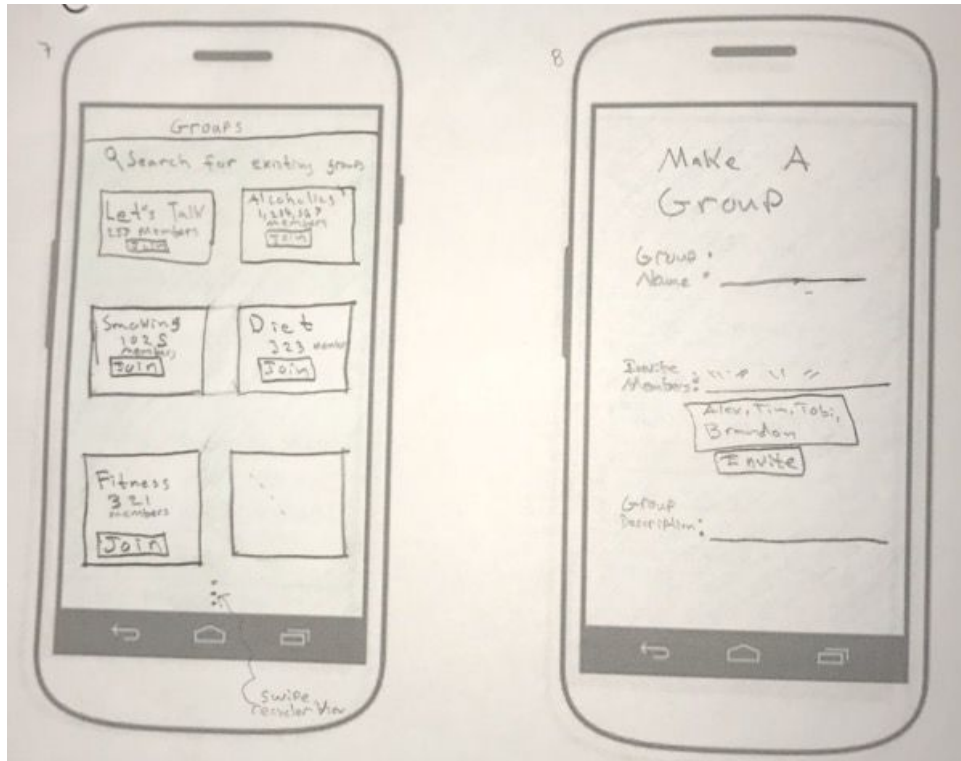 7
Groups
Search for existing groups
Let's Talk
Members
Join
Alcoholics
members
Join
Smoking
1025
members
Join
Diet
323 member
Join
Fitness
321
members
Join
swipe
recycler View
8
Make A
Group
Group :
Name
Invite
Members:
Alex, Tim, Tobi,
Brandon
Invite
Group
Description: